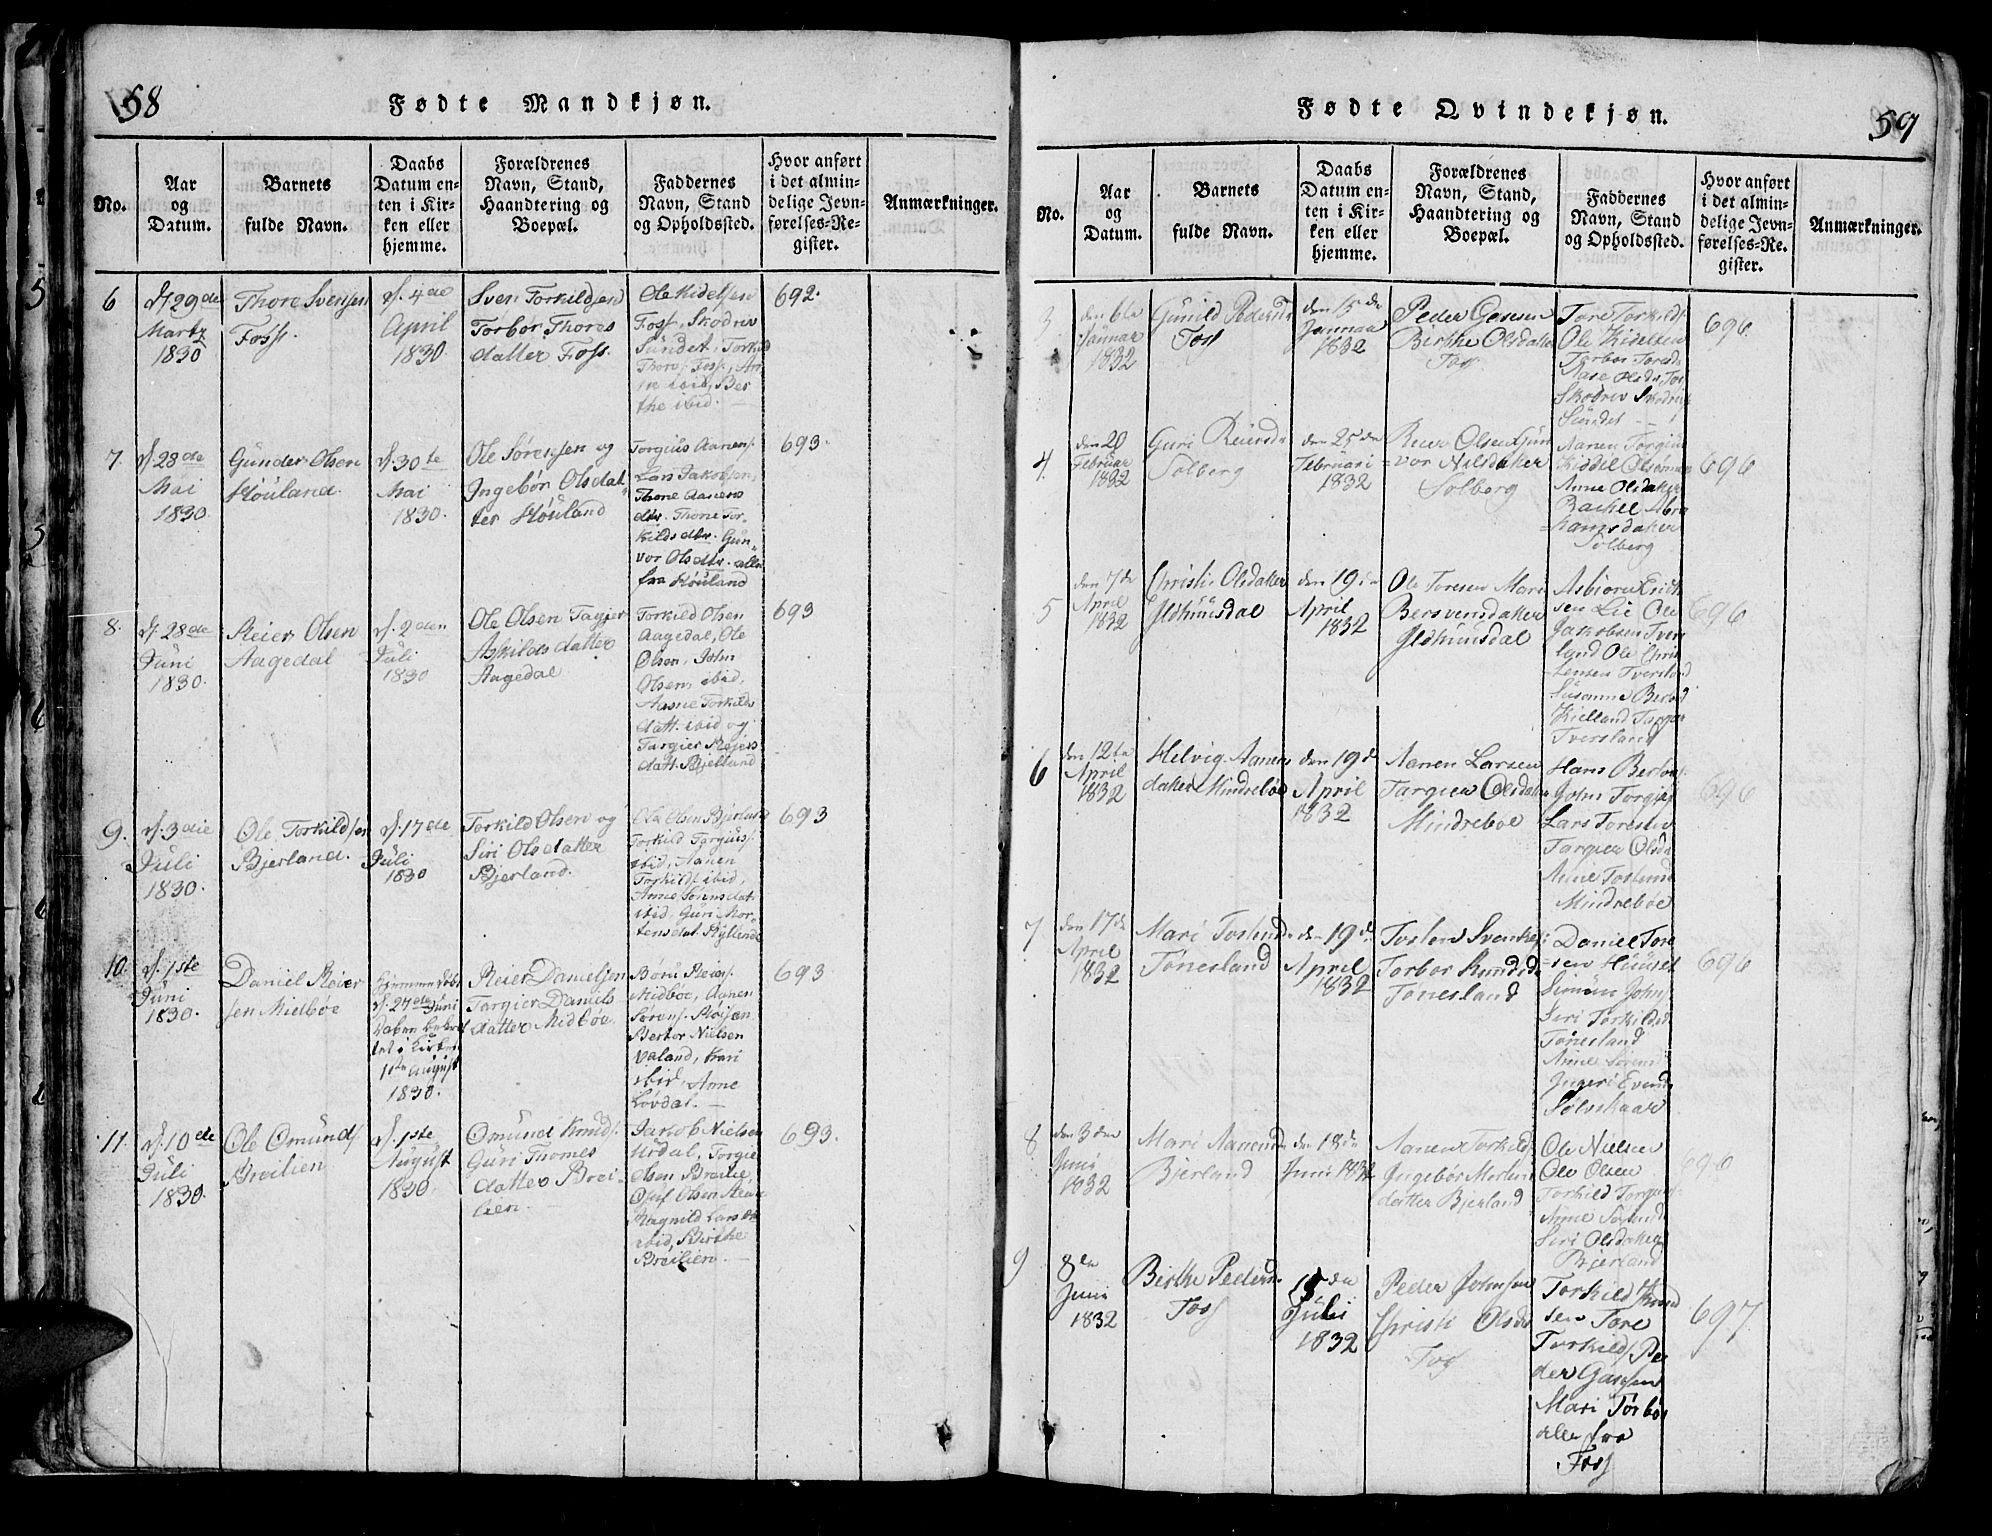 58
Fødte Mandkjøn.
No.
Aar
og
Datum.
Barnets
fulde Navn.
Daabs
Datum en-
ten i Kir-
ken eller
hjemme.
Forældrenes
Navn, Stand,
Haandtering og
Boepæl.
Faddernes
Navn, Stand
og Opholdssted.
Hvor anført
i det almin-
delige Jevn-
førelses-Re-
gister.
Anmærkninger.
6
d. 29de
Marts
1830
Thore Svensen
Foss.
d. 4de
April
1830
Sven Torkildsen
Torbor Thores
datter Foss.
Ole Kidelsen
Foss, Skodriv
Sundet, Torkild
Thors. Foss, An
ne ibid, Ber
the ibid.
692.
7.
d. 28de
Mai
1830.
Gunder Olsen
Høuland.
d. 30te
Mai
1830.
Ole Sørensen og
Ingebor Olsdat
ter Høuland
Torgius Aanens.
Lars Jakobsen,
Thone Aanens
dtr. Thone Tor-
kilds dtr. Gun-
vor Olsdtr. alle
fra Høuland
693.
8.
d. 28de
Juni
1830.
Reier Olsen
Aagedal
d. 2den
Juli
1830
Ole Olsen Tagjer
Askilds datter
Aagedal
Torkild Olsen
Aagedal, Ole
Olsen, John
Olsen, ibid,
Aasne Torkilds
datt. ibid og
Targier Reiers
datt. Bjelland
693
9.
d. 3die
Juli
1830.
Ole Torkildsen
Bjerland.
d. 17de
Juli
1830
Torkild Olsen og
Siri Olsdatter
Bjerland.
Ole Olsen Bjerland
Torkild Targuss.
ibid, Aanen
Torkilds. ibid,
Anne Sørensdat
ibid, Guri Mor-
tensdat. Kyllands
693
10.
d. 1ste
Juni
1830.
Daniel Reier
sen Midbøe
Hjemme døbt
d. 27de Juni
Daben bekræf
tet i Kirken
1ste August
1830.
Reier Danielsen
Targier Daniels
datter Midbøe.
Børu Reiers.
Midbøe, Aanen
Sørens.
Berbor Nielsen
Valand, Kari
ibid, Anne
Løvdal.
693
11.
d. 10de
Juli
1830.
Ole Omunds.
Breilien
d. 1ste
August
1830.
Omund Knuds.
Guri Thomes
datter Brei
lien.
Jakob Nielsen
Urdal, Torgie
Olsen Breilie,
Olsen
Ragnild Lars dtr
ibid, Birthe
Breilien.
693.
59
Fødte Qvindekjøn.
No.
Aar
og
Datum.
Barnets
fulde Navn.
Daabs
Datum en-
ten i Kir-
ken eller
hjemme.
Forældrenes
Navn, Stand,
Haandtering og
Boepæl.
Faddernes
Navn, Stand
og Opholdssted.
Hvor anført
i det almin-
delige Jevn-
førelses-Re-
gister.
Anmærkninger.
3
den 6te
Januar
1832
Gunild Pedersd.
Foss
den 15de
Januar
1832
Peder Gasesen
Birthe Olsdater
Foss
Tore Torkilds.
Ole Kidelsen
Torbor Toresd.
Aase Olsdr. Fos
Skodriv Skodriv
Sundet
696
4.
den 20
Februar
1832
Guri Reiersd.
Solberg
den 25de
Februari
1832
Reier Olsen Gun
vor Nilsdatter
Solberg
Aanen Torgius
Kiddil Olsen
Anne Olsdater
Rachel Abra
hamsdater
Solberg
696
5
den 7de
April
1832
Christi Olsdater
Ildhuusdal
den 19de
April
1832
Ole Toresen Mari
Bersvensdater
Ildhuusdal
Asbiørn Erich
sen Lie Ole
Jakobsen Tvers
land Ole Chris
tensen Tversland
Susanne Berod
Kielland Targier
Tversland
696
6
den 12te
April
1832
Helvig Aanens
dater Mindrebøe
den 19de
April
1832
Aanen Larsen
Targier Olsdater
Mindreboe
Hans Bertors.
John Torgiers.
Lars Toresen
Targier Olsdr.
Anne Toslensd.
Mindrebøe
696
7
den 17de
April
1832
Mari Toslensd.
Tønesland
den 19de
April
1832
Toslen Svenkes.
Torbor Knudsd.
Tønesland
Daniel Tore
sen Huuset
Simon Johns.
Siri Torkildsd.
Tønesland
Anne Sørensd.
Ingeri Evensd.
Sølvskaar
696
8
den 3den
Juni
1832
Mari Aanensd.
Bjerland
den 18de
Juni 1832
Aanen Torkilds.
Ingebor Mortens
datter Bjerland
Ole Nielsen
Ole Olsen
Torkild Torguss.
Anne Sørensd.
Siri Olsdater
Bjerland
696
9
8de
Juni
1832
Birthe Pedersd.
Foss
15de
Juli
1832
Peder Johnsen
Christi Olsdr.
Fos
Torkild Knud
sen Tore
Torkilds. Pe
der Gassen
Mari Torbor
alle fra
Foss
697